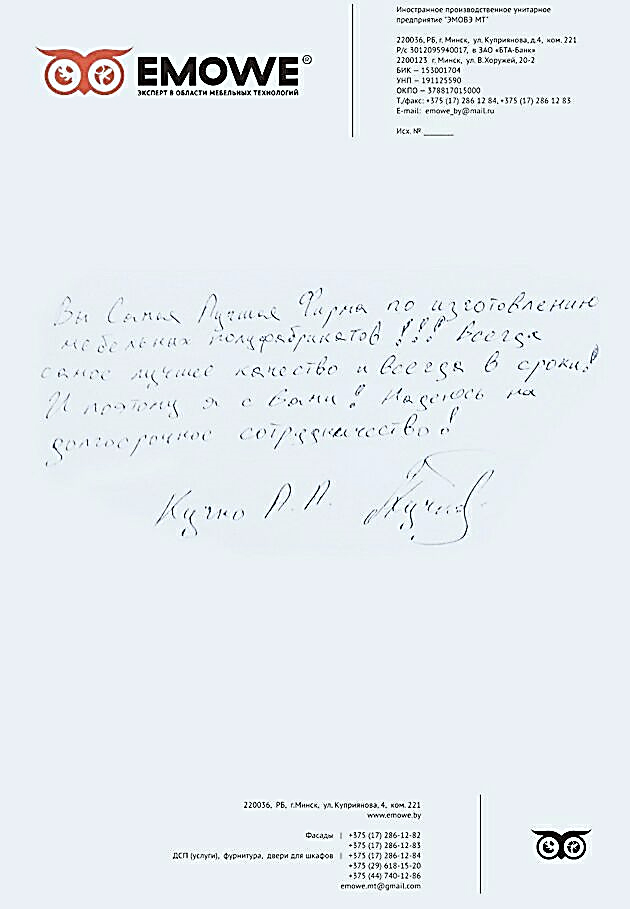 EMOWE®
ЭКСПЕРТ В ОБЛАСТИ МЕБЕЛЬНЫХ ТЕХНОЛОГИЙ
Иностранное производственное унитарное
предприятие "ЭМОВЭ МТ"
220036, РБ, г. Минск, ул. Куприянова, д.4, ком. 221
Р/с 3012095940017, в ЗАО «БТА-Банк»
2200123 г. Минск, ул. В.Хоружей, 20-2
БИК — 153001704
УНП — 191125590
ОКПО — 378817015000
Т./факс: +375 (17) 286 12 84, +375 (17) 286 12 83
E-mail: emowe_by@mail.ru
Исх. № ______
Вы Самая Лучшая Фирма по изготовлению
мебельных полуфабрикатов!!! Всегда
самое лучшее качество и всегда в сроки!
И поэтому я с Вами! Надеюсь на
долгосрочное сотрудничество!
Кучко Л.Л.
220036, РБ, г.Минск, ул. Куприянова, 4, ком. 221
www.emowe.by
Фасады | +375 (17) 286-12-82
+375 (17) 286-12-83
ДСП (услуги), фурнитура, двери для шкафов | +375 (17) 286-12-84
+375 (29) 618-15-20
+375 (44) 740-12-86
emowe.mt@gmail.com